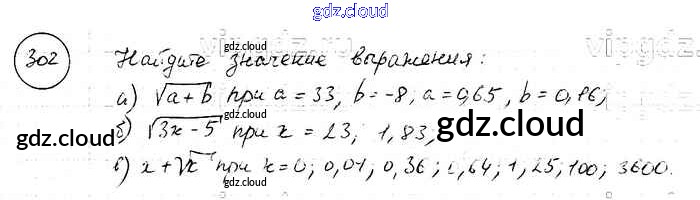 gdz.cloud
302 Найдите значение выражения:
а) √a+b при a = 33, b = -8, a = 0,65, b = 0,16;
б) √3x - 5 при x = 23; 1,83;
в) x + √x при x = 0; 0,01; 0,36; 0,64; 1; 25; 100; 3600.
gdz.cloud
gdz.cloud
gdz.cloud
gdz.cloud
gdz.cloud
gdz.cloud